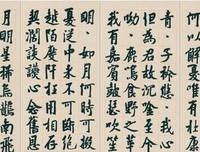 何以解憂
青、子衿悠、我心
但為君故沈吟至今
呦、鹿鳴食野之苹
我有嘉賓鼓瑟吹笙
明、如月何時可掇
憂從中來不可斷絕
越陌度阡枉用相存
契闊談讌心念舊恩
月明星稀烏鵲南飛